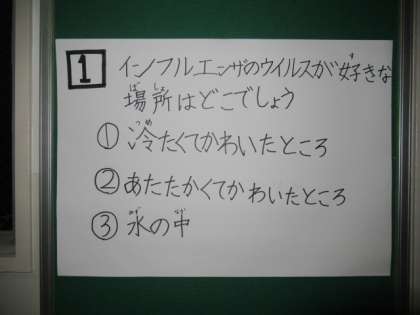 1 インフルエンザのウイルスが好きな
場所はどこでしょう
①冷たくてかわいたところ
②あたたかくてかわいたところ
③水の中